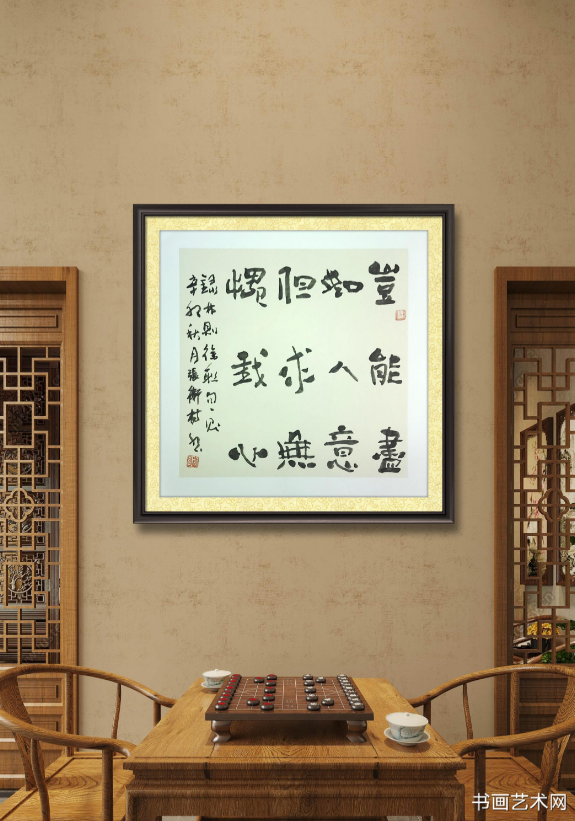 豈能盡
如人意
但求無
愧我心
錄林則徐聯句
辛卯秋月張衛樹書
书画艺术网